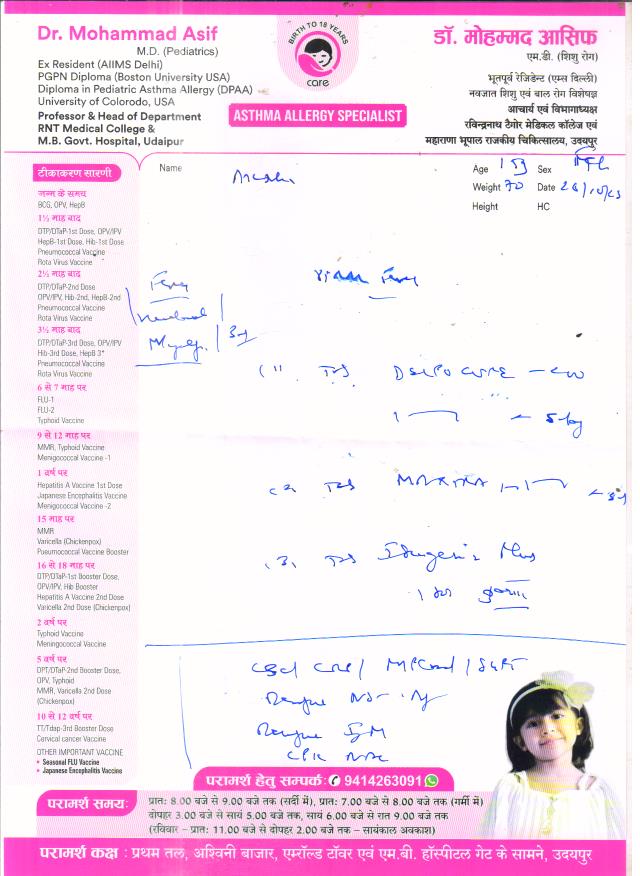 Dr. Mohammad Asif
M.D. (Pediatrics)
Ex Resident (AIIMS Delhi)
PGPN Diploma (Boston University USA)
Diploma in Pediatric Asthma Allergy (DPAA)
University of Colorodo, USA
Professor & Head of Department
RNT Medical College &
M.B. Govt. Hospital, Udaipur
BIRTH TO 18 YEARS
care
ASTHMA ALLERGY SPECIALIST
डॉ. मोहम्मद आसिफ
एम.डी. (शिशु रोग)
भूतपूर्व रेजिडेन्ट (एम्स दिल्ली)
नवजात शिशु एवं बाल रोग विशेषज्ञ
आचार्य एवं विभागाध्यक्ष
रविन्द्रनाथ टैगोर मेडिकल कॉलेज एवं
महाराणा भूपाल राजकीय चिकित्सालय, उदयपुर
Name
Age Sex
Weight 70 Date
Height HC
टीकाकरण सारणी
जन्म के समय
BCG, OPV, HepB
1½ माह बाद
DTP/DTaP-1st Dose, OPV/IPV
HepB-1st Dose, Hib-1st Dose
Pneumococcal Vaccine
Rota Virus Vaccine
2½ माह बाद
DTP/DTaP-2nd Dose
OPV/IPV, Hib-2nd, HepB-2nd
Pneumococcal Vaccine
Rota Virus Vaccine
3½ माह बाद
DTP/DTaP-3rd Dose, OPV/IPV
Hib-3rd Dose, HepB 3*
Pneumococcal Vaccine
Rota Virus Vaccine
6 से 7 माह पर
FLU-1
FLU-2
Typhoid Vaccine
9 से 12 माह पर
MMR, Typhoid Vaccine
Menigococcal Vaccine -1
1 वर्ष पर
Hepatitis A Vaccine 1st Dose
Japanese Encephalitis Vaccine
Menigococcal Vaccine -2
15 माह पर
MMR
Varicella (Chickenpox)
Pueumococcal Vaccine Booster
16 से 18 माह पर
DTP/DTaP-1st Booster Dose,
OPV/IPV, Hib Booster
Hepatitis A Vaccine 2nd Dose
Varicella 2nd Dose (Chickenpox)
2 वर्ष पर
Typhoid Vaccine
Meningococcal Vaccine
5 वर्ष पर
DPT/DTaP-2nd Booster Dose,
OPV, Typhoid
MMR, Varicella 2nd Dose
(Chickenpox)
10 से 12 वर्ष पर
TT/Tdap-3rd Booster Dose
Cervical cancer Vaccine
OTHER IMPORTANT VACCINE
• Seasonal FLU Vaccine
• Japanese Encephalitis Vaccine
Fever
Viral Fever
Dengue IgM
परामर्श हेतु सम्पर्क: 9414263091
परामर्श समय:
प्रात: 8.00 बजे से 9.00 बजे तक (सर्दी में), प्रात: 7.00 बजे से 8.00 बजे तक (गर्मी में)
दोपहर 3.00 बजे से सायं 5.00 बजे तक, सायं 6.00 बजे से रात 9.00 बजे तक
(रविवार – प्रात: 11.00 बजे से दोपहर 2.00 बजे तक – सायंकाल अवकाश)
परामर्श कक्ष : प्रथम तल, अश्विनी बाजार, एमरॉल्ड टॉवर एवं एम.बी. हॉस्पीटल गेट के सामने, उदयपुर